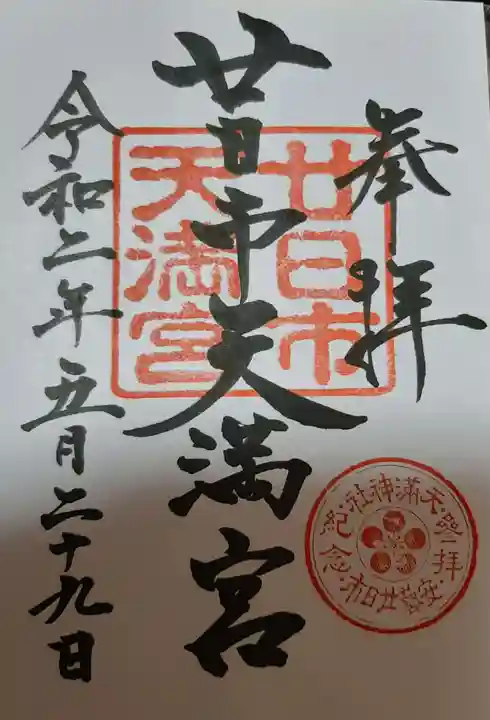 奉拝
廿日市天満宮
令和二年五月二十九日
廿日市
天満宮
天満神社・参拝
紀念・安芸廿日市